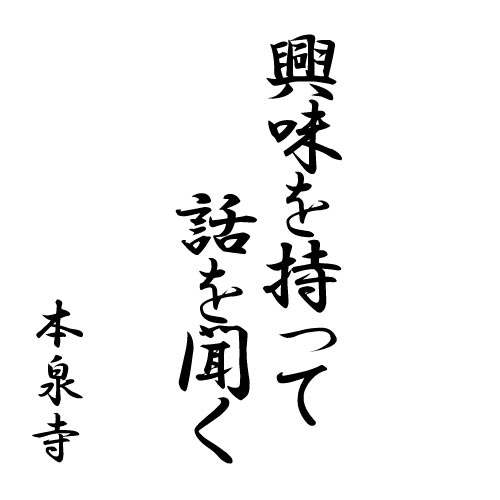 興味を持って
話を聞く
本泉寺